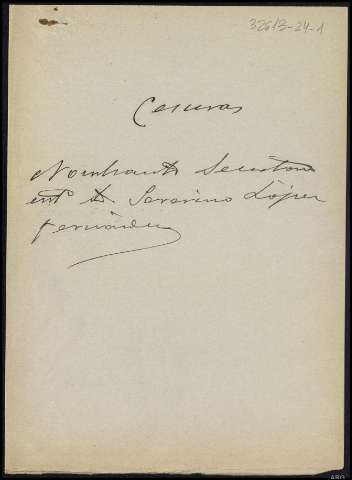 32613-24-1
Cesuras
Nombrando Secretario
int° D. Severino López
Fernández